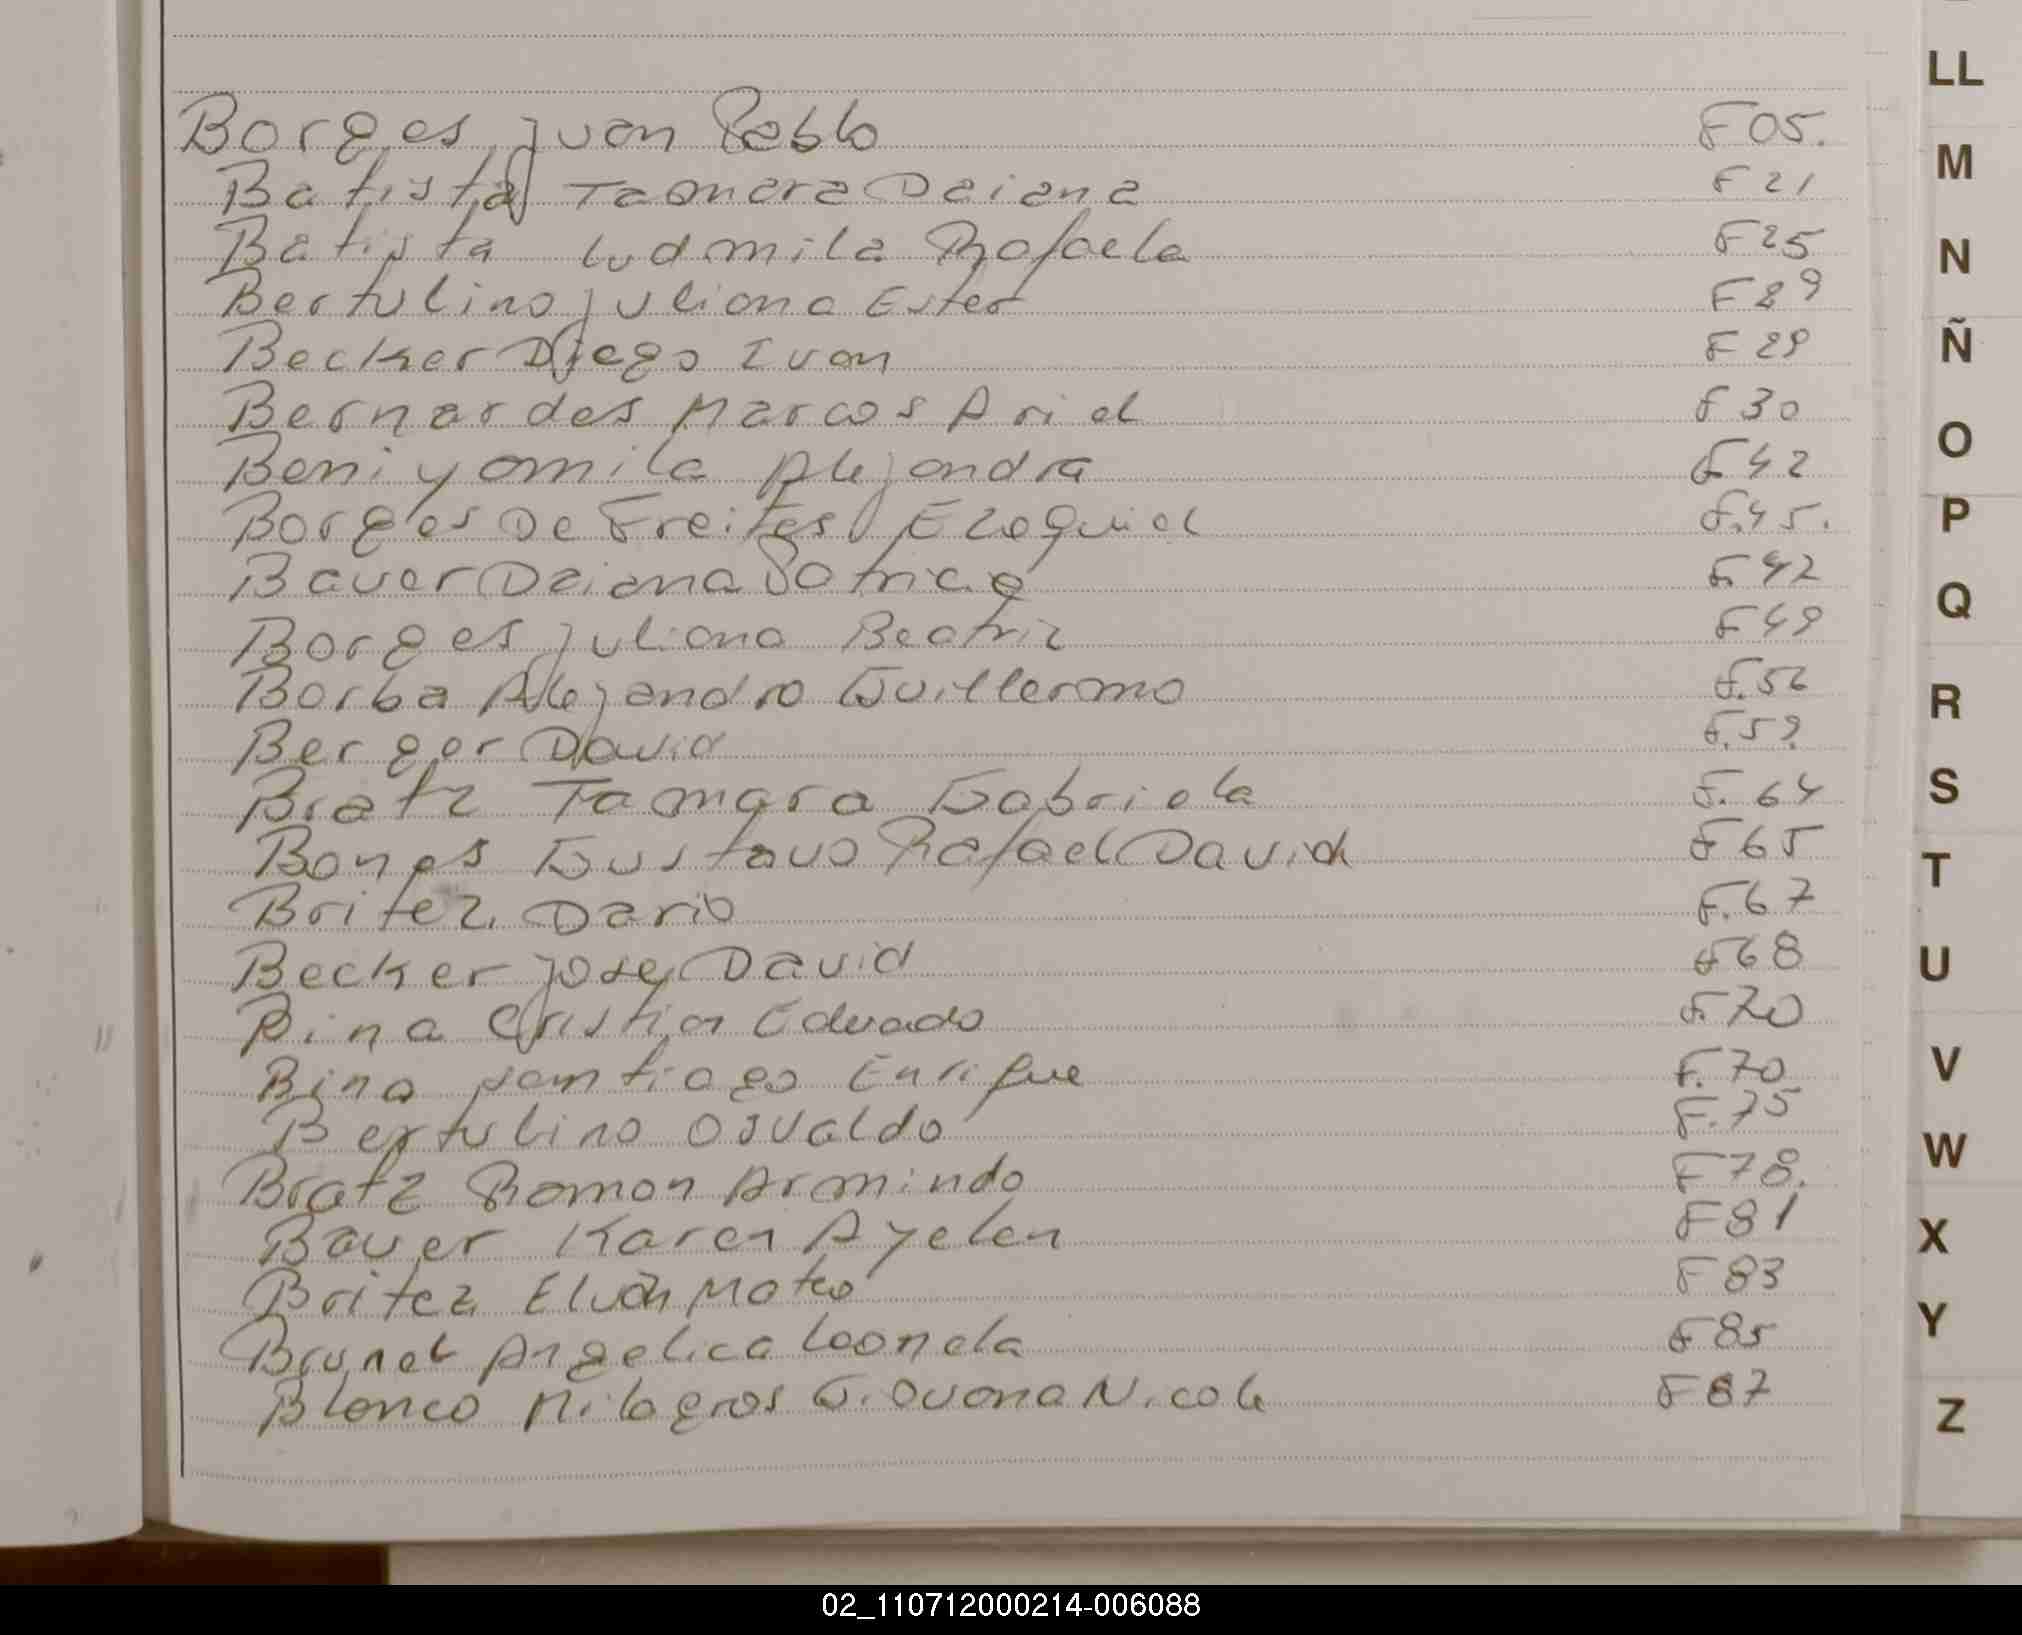 Borges Juan Pablo F 05.
Batista Tamara Daiana F 21
Batista Ludmila Rafaela F 25
Bertulino Juliana Ester F 89
Becker Diego Ivan F 29
Bernardes Marcos Ariel F 30
Beni yamila Alejandra F 42
Borges De Freitas Ezequiel F.45.
Bauer Daiana Patricia F. 42
Borges Juliana Beatriz F 49
Borba Alejandro Guillermo F.56
Berger David F.59.
Bratz Tamara Gabriela F. 64
Bones Gustavo Rafael David F 65
Britez Dario F.67
Becker Jose David F68
Bina Cristian Eduado F.70
Bina Santiago Enrique F. 70
Bertulino Osvaldo F.75
Bratz Ramon Armindo F78.
Bauer Karen Ayelen F81
Britez Mateo F 83
Brunel Angelica Leonela F 85
Blanco Milagros Giovana Nicole F 87
LL
M
N
Ñ
O
P
Q
R
S
T
U
V
W
X
Y
Z
02_110712000214-006088